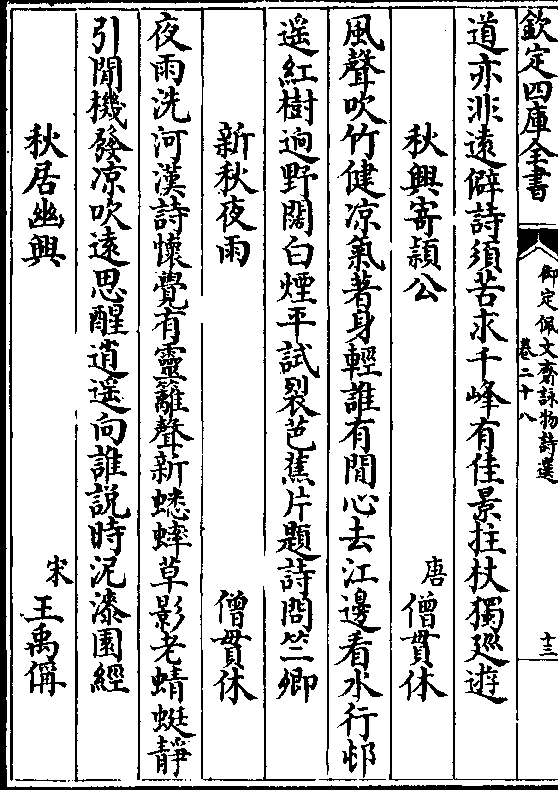 欽定四庫全書
御定佩文齋詠物詩選
卷二十八
十三
道亦非遠僻詩須苦求千峰有佳景拄杖獨廵遊
秋興寄頴公
唐
僧貫休
風聲吹竹健凉氣著身輕誰有閒心去江邊看水行邨
遥紅樹逈野闊白煙平試裂芭蕉片題詩問竺卿
新秋夜雨
僧貫休
夜雨洗河漢詩懷覺有靈籬聲新蟋蟀草影老蜻蜓靜
引閒機發凉吹遠思醒逍遥向誰説時泥漆園經
秋居幽興
宋
王禹偁